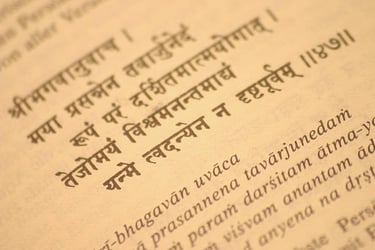 Persien
on aller Veran
श्रीभगवानुवाच ।
मया प्रसन्नेन तवार्जुनेदं
रूपं परं दर्शितमात्मयोगात् ।
तेजोमयं विश्वमनन्तमाद्यं
यन्मे त्वदन्येन न दृष्टपूर्वम् ॥४७॥
ī-bhagavān uvāca
prasannena tavārjunedaṁ
paraṁ darśitam ātma-yo
viśvam anantam ād
anyena na dṛṣṭ
Persö